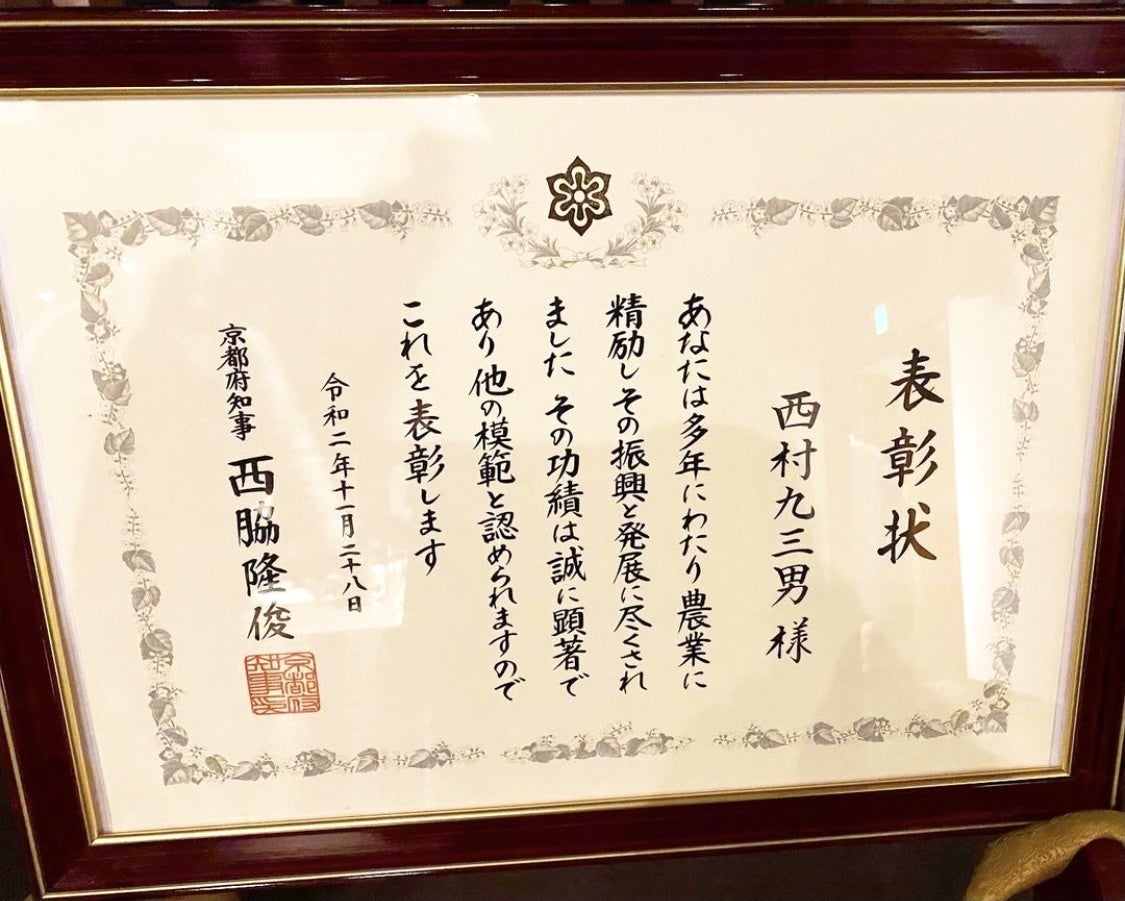 表彰状
西村九三男 様
あなたは多年にわたり農業に
精励しその振興と発展に尽くされ
ました その功績は誠に顕著で
あり他の模範と認められますので
これを表彰します
令和二年十一月二十八日
京都府知事 西脇隆俊
京都府知事之印